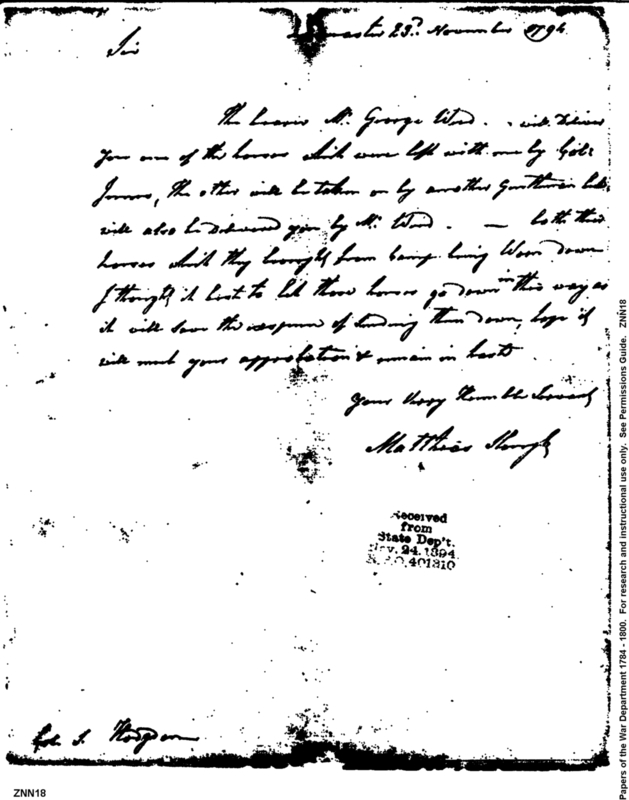 Lancaster 23d. November 1794
Sir
The bearer Mr. George Wood. will Deliver
you one of the horses which were left with me by
James, the other will be taken on by another Gentleman
will also be delivered you by Mr. Wood. — both their
horses which they brought from Camp being Worn down
I thought it best to let those horses go down in this way as
it will save the expence of sending them down, hope it
will meet your approbation & remain in haste
Your Very Humble Servant
Matthias Slough
Received
from
State Dep't.
Nov. 24, 1894
401310
Col. S. Hodgdon
ZNN18
Papers of the War Department 1784 - 1800. For research and instructional use only. See Permissions Guide. ZNN18